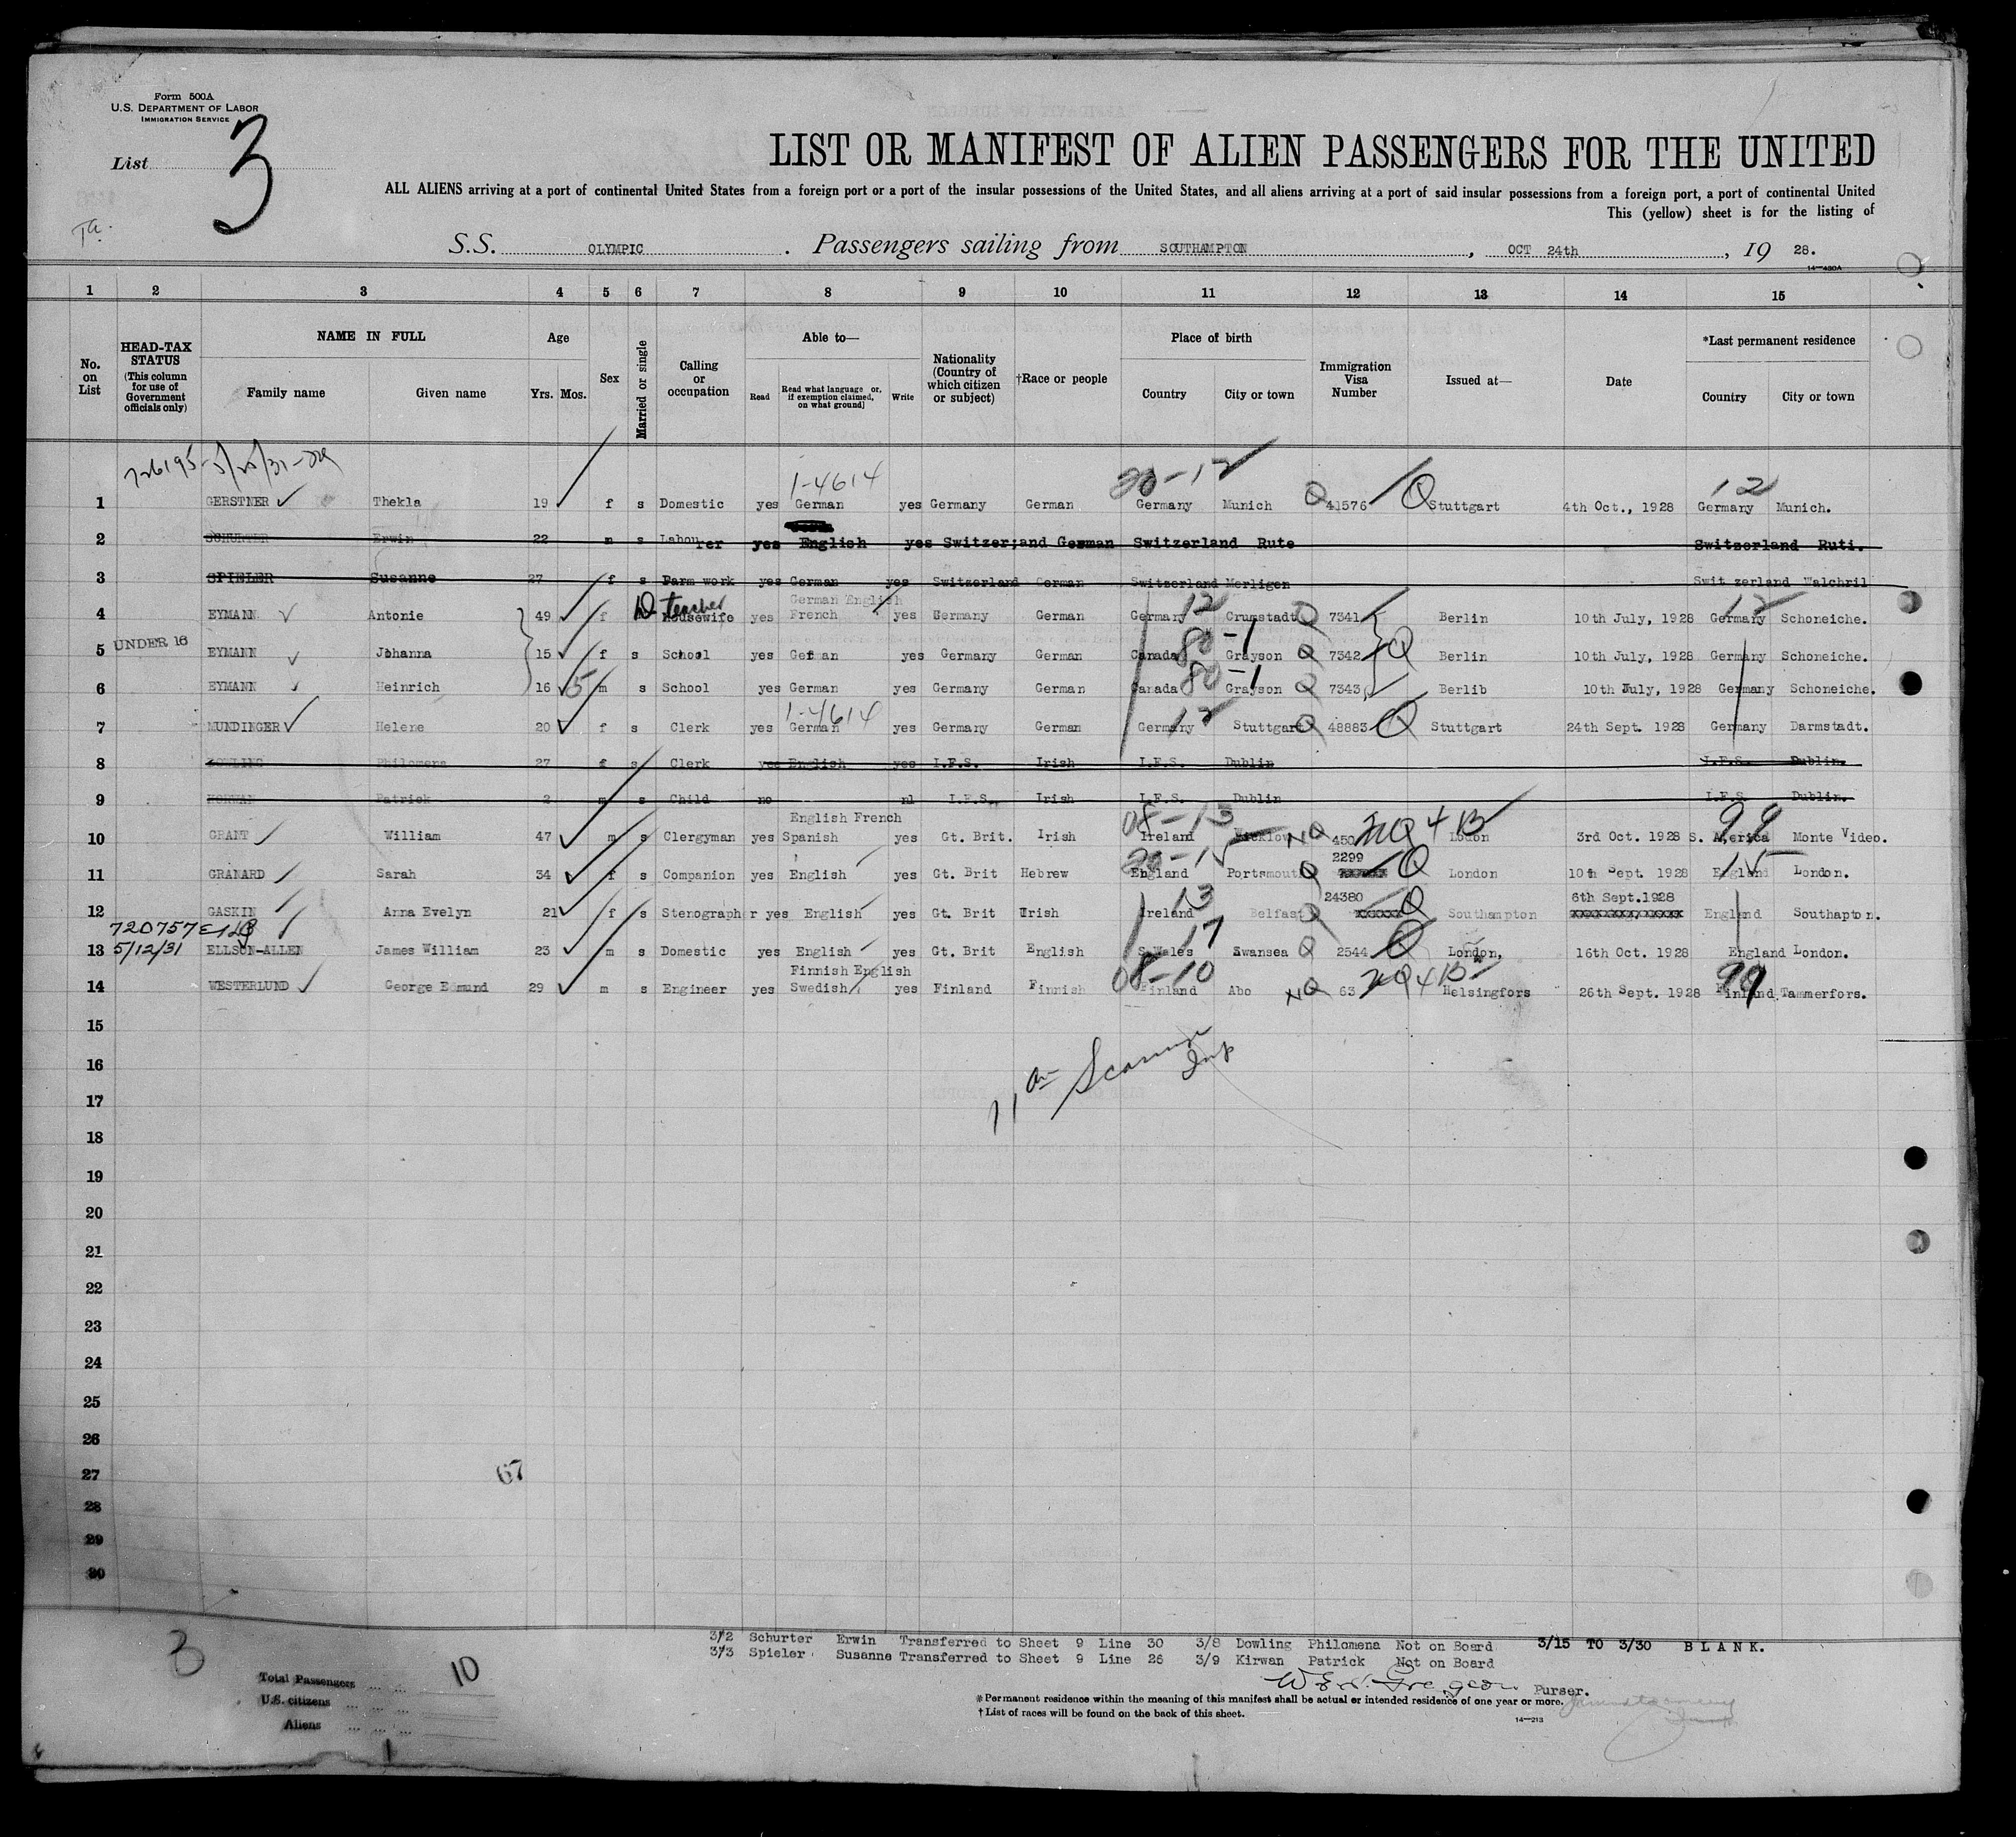 Form 500A
U.S. DEPARTMENT OF LABOR
IMMIGRATION SERVICE
List 3
LIST OR MANIFEST OF ALIEN PASSENGERS FOR THE UNITED
ALL ALIENS arriving at a port of continental United States from a foreign port or a port of the insular possessions of the United States, and all aliens arriving at a port of said insular possessions from a foreign port, a port of continental United
This (yellow) sheet is for the listing of
S.S. OLYMPIC. Passengers sailing from SOUTHAMPTON, OCT 24th, 19 28.
14—430A
1 2 3 4 5 6 7 8 9 10 11 12 13 14 15
No. on List
HEAD-TAX STATUS (This column for use of Government officials only)
NAME IN FULL
Family name Given name
Age
Yrs. Mos.
Sex
Married or single
Calling or occupation
Able to—
Read Read what language or, if exemption claimed, on what ground] Write
Nationality (Country of which citizen or subject)
†Race or people
Place of birth
Country City or town
Immigration Visa Number
Issued at—
Date
*Last permanent residence
Country City or town
1-4614 20-12 12
1 GERSTNER Thekla 19 f s Domestic yes German yes Germany German Germany Munich Q 41576 Q Stuttgart 4th Oct., 1928 Germany Munich.
2 SCHURTER Erwin 22 m s Labourer yes English yes Switzer;and German Switzerland Rute Switzerland Ruti.
3 SPIELER Susanne 27 f s Farm work yes German yes Switzerland German Switzerland Merligen Swit zerland Walchril
teacher German English 12 12
4 EYMANN Antonie 49 f Housewife yes French yes Germany German Germany Crumstadt Q 7341 Berlin 10th July, 1928 Germany Schoneiche.
UNDER 16
5 EYMANN Johanna 15 f s School yes German yes Germany German Canada 80-1 Grayson Q 7342 Q Berlin 10th July, 1928 Germany Schoneiche.
6 EYMANN Heinrich 16 5 m s School yes German yes Germany German Canada 80-1 Grayson Q 7343 Berlib 10th July, 1928 Germany Schoneiche.
1-4614
7 MUNDINGER Helene 20 f s Clerk yes German yes Germany German Germany 12 Stuttgart Q 48883 Q Stuttgart 24th Sept. 1928 Germany Darmstadt.
8 DOWLING Philomena 27 f s Clerk yes English yes I.F.S. Irish I.F.S. Dublin I.F.S. Dublin.
9 Patrick 2 m s Child no nl I.F.S. Irish I.F.S. Dublin I.F.S. Dublin.
English French 08-13 99
10 GRANT William 47 m s Clergyman yes Spanish yes Gt. Brit. Irish Ireland Wicklow NQ 450 NQ 4 B Lodon 3rd Oct. 1928 S. America Monte Video.
20-15 2299
11 GRANARD Sarah 34 f s Companion yes English yes Gt. Brit Hebrew England Portsmouth Q xxxxxx Q London 10th Sept. 1928 England 15 London.
13 24380 6th Sept.1928
12 GASKIN Anna Evelyn 21 f s Stenographer yes English yes Gt. Brit Irish Ireland Belfast Q xxxxxx Q Southampton xxxxxxxxxxxxxx England Southapton.
720757
5/12/31
13 ELLSON-ALLEN James William 23 m s Domestic yes English yes Gt. Brit English S.Wales 17 Swansea Q 2544 Q London, 16th Oct. 1928 England London.
Finnish English 08-10
14 WESTERLUND George Edmund 29 m s Engineer yes Swedish yes Finland Finnish Finland Abo NQ 63 NQ 4 B Helsingfors 26th Sept. 1928 Finland, Tammerfors.
15
16
17
18
19
20
21
22
23
24
25
26
27
67
28
29
30
3/2 Schurter Erwin Transferred to Sheet 9 Line 30 3/8 Dowling Philomena Not on Board 3/15 TO 3/30 BLANK.
3/3 Spieler Susanne Transferred to Sheet 9 Line 26 3/9 Kirwan Patrick Not on Board
3
Total Passengers 10
U.S. citizens
Aliens
Purser.
* Permanent residence within the meaning of this manifest shall be actual or intended residence of one year or more.
† List of races will be found on the back of this sheet.
14—213